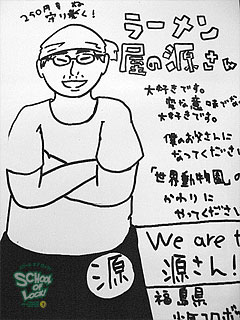 250円を
守り抜く!
ラーメン
屋の源さん
大好きです。
変な意味でな
大好きです。
僕のお父さんに
なってください
「世界動物園」の
かわりに
やってくださ
We are t
源さん!
源
福島県
少年スコポ
SCHOOL
OF
LOCK!